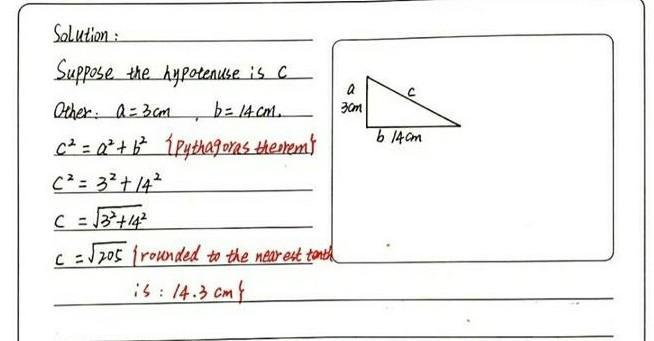 Solution :
Suppose the hypotenuse is c
Other: a = 3cm , b = 14 cm.
c² = a² + b² {Pythagoras theorem}
c² = 3² + 14²
c = √3²+14²
c = √205 {rounded to the nearest tenth
is : 14.3 cm}
a
3cm
c
b 14cm